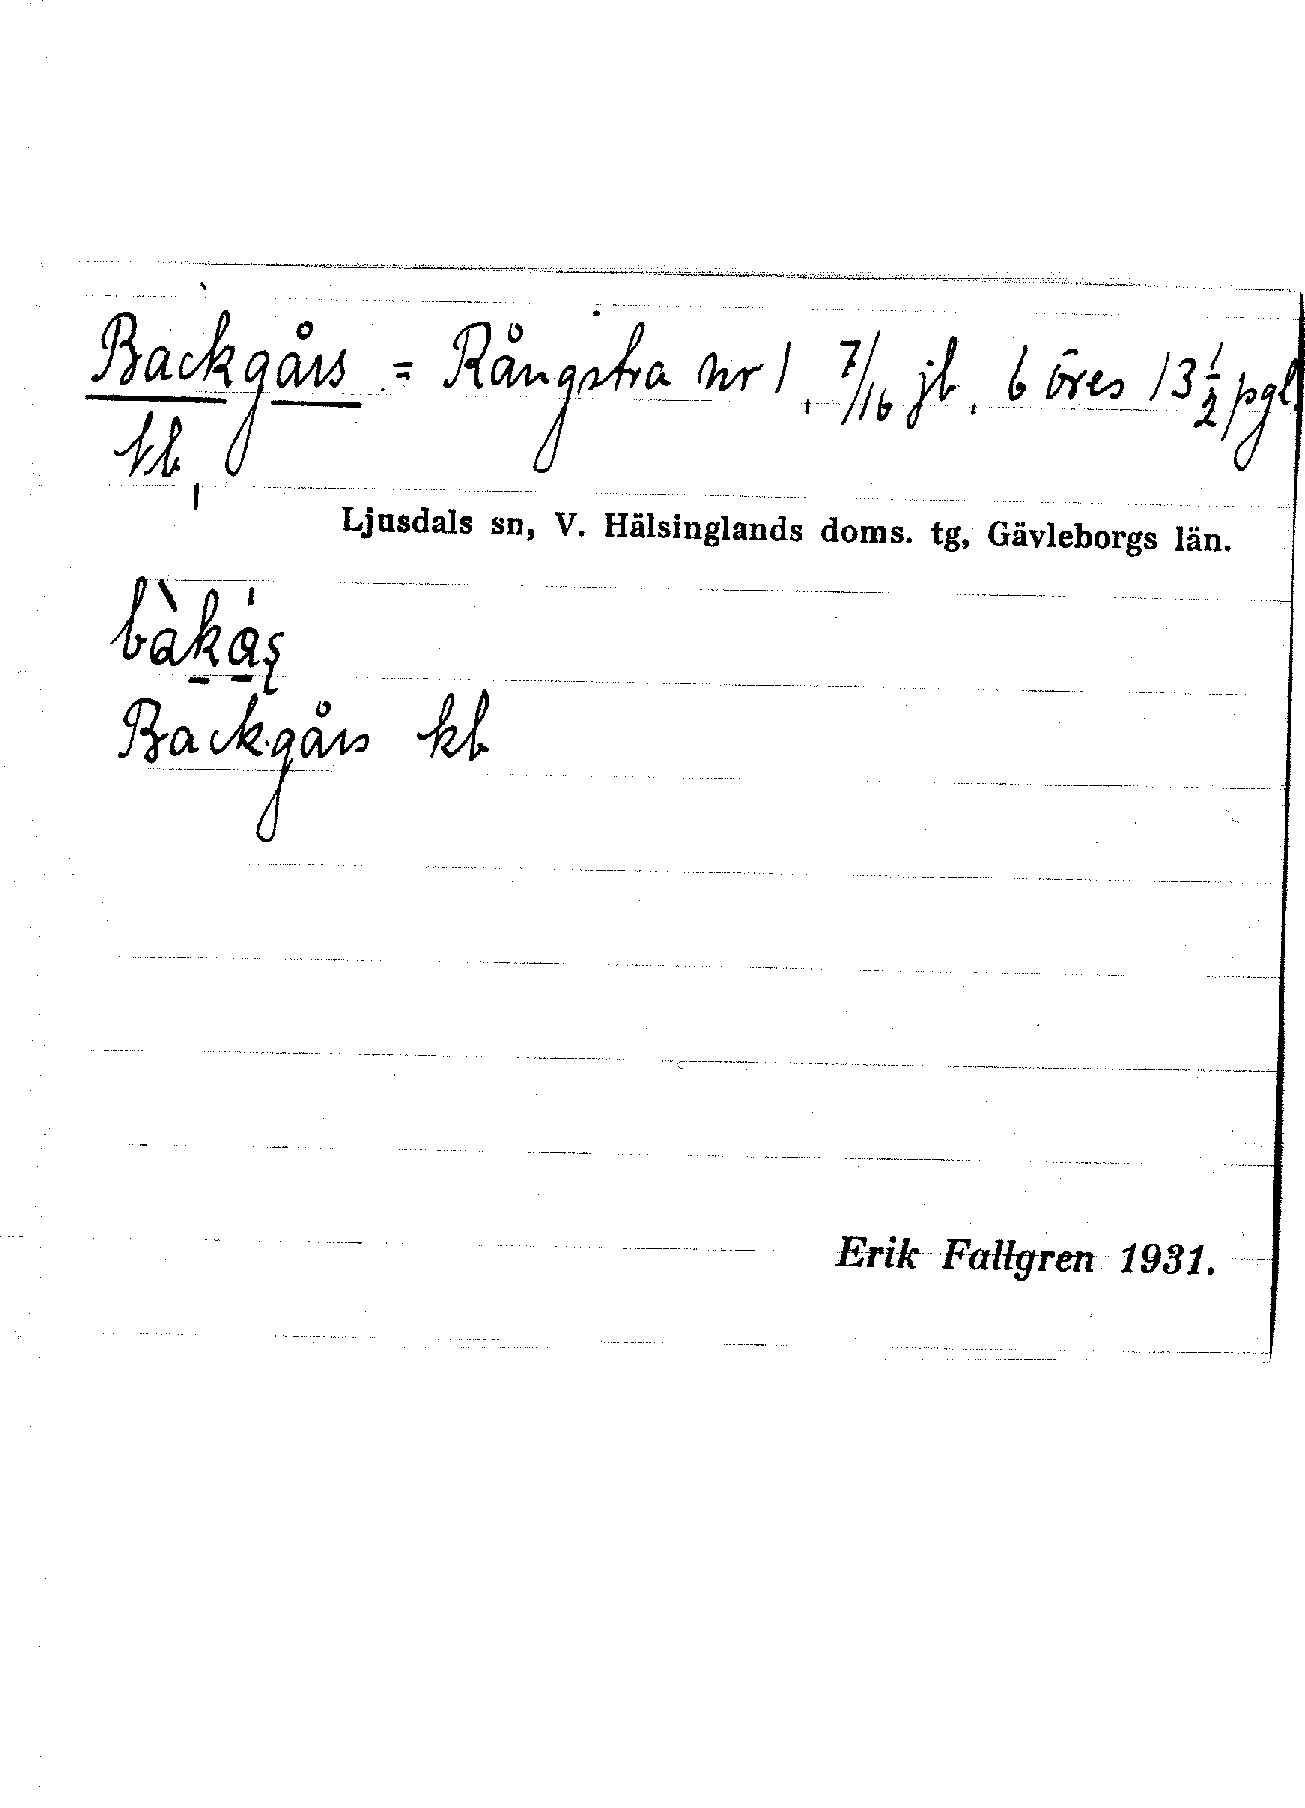 Backgårs = Rångstra nr 1, 7/16 jb, 6 öres 13 1/2 pgl.
kb
Ljusdals sn, V. Hälsinglands doms. tg, Gävleborgs län.
Backgårs kb
Erik Fallgren 1931.